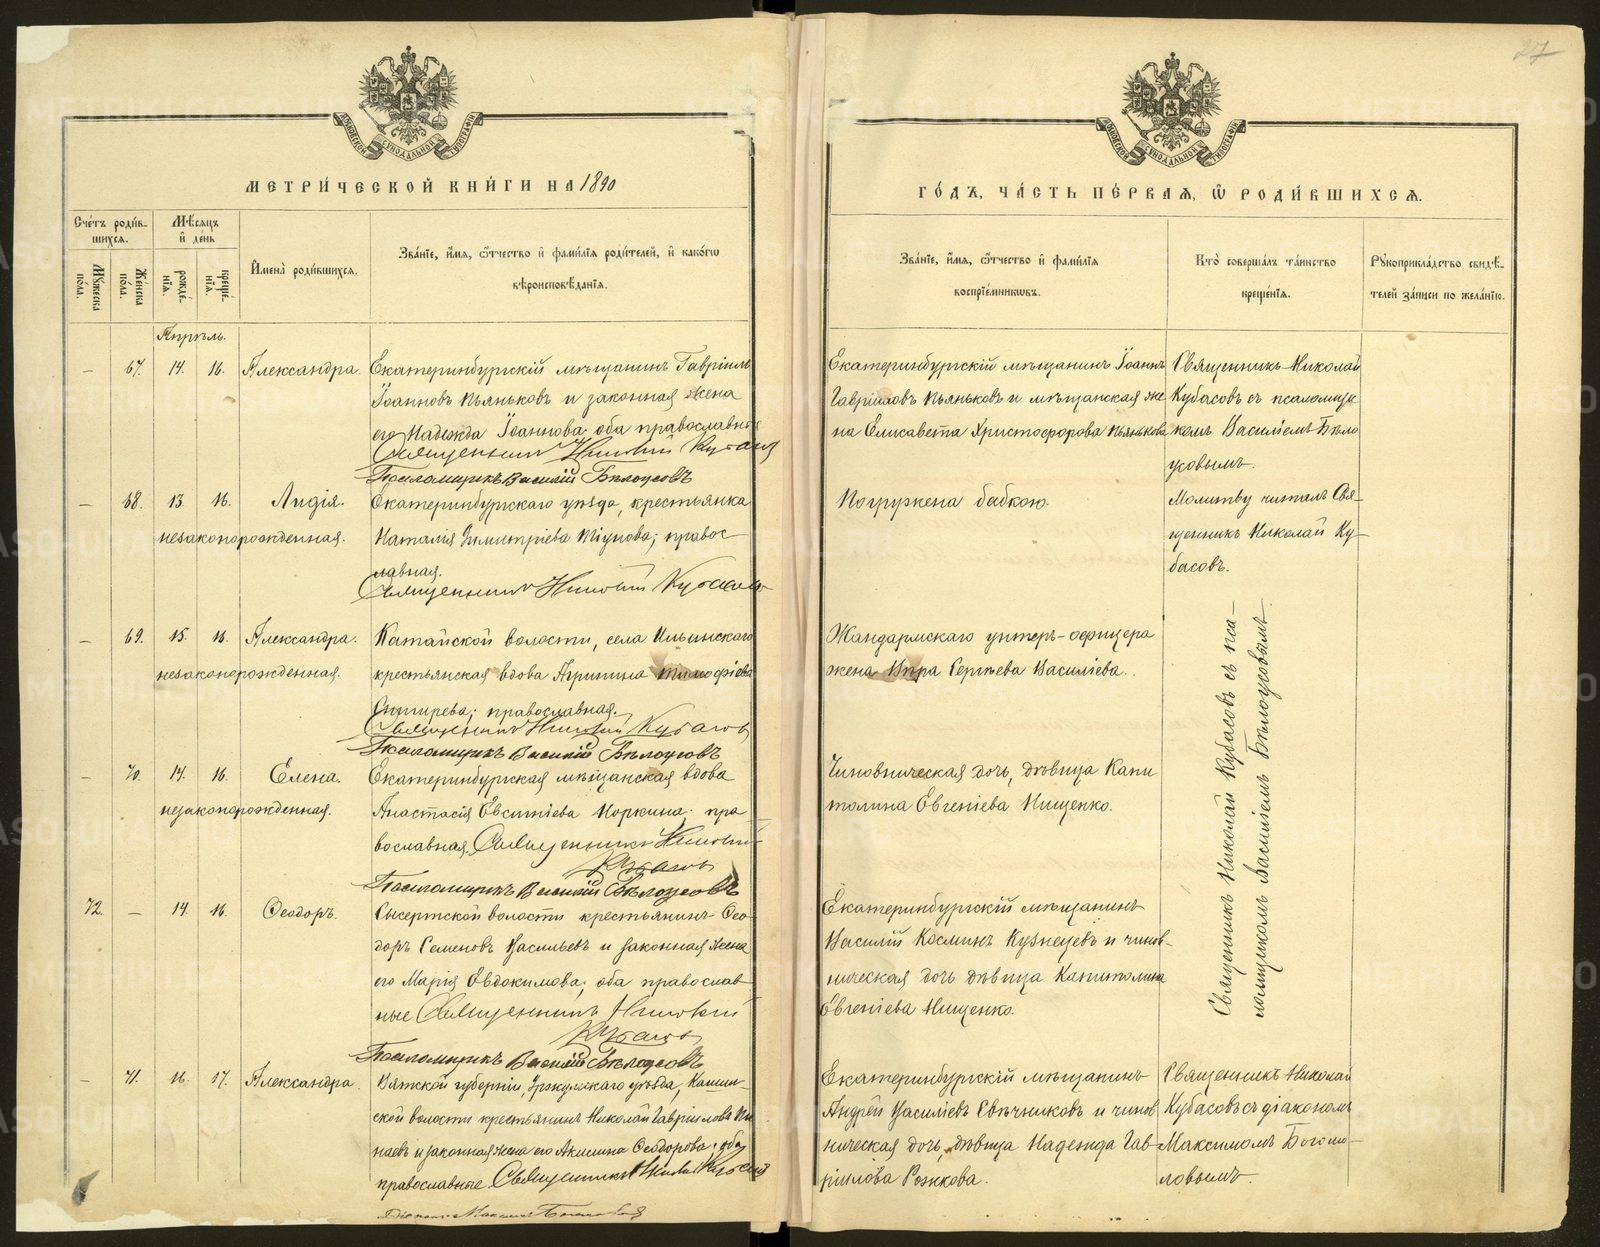 27
МОСКОВСКОЙ СѴНОДАЛЬНОЙ ТИПОГРАФІИ
МОСКОВСКОЙ СѴНОДАЛЬНОЙ ТИПОГРАФІИ
МЕТРИ́ЧЕСКОЙ КНИ́ГИ НА 1890
ГО́ДЪ, ЧА́СТЬ ПЕ́РВАЯ, Ѡ РОДИ́ВШИХСЯ.
Сче́тъ роди́в-
шихся.
Му́жеска по́ла.
Же́нска по́ла.
Мѣ́сяцъ и де́нь
рожде́-нїя.
креще́-нїя.
И́мена роди́вшихся.
Зва́нїе, и́мя, ѻ́тчество и фами́лїя роди́телей, и како́гѡ
вѣроисповѣ́данїя.
Зва́нїе, и́мя, ѻ́тчество и фами́лїя
воспрїе́мниковъ.
Кто̀ соверша́лъ та́инство
креще́нїя.
Рукоприкла́дство свидѣ́-
телей за́писи по жела́нїю.
Апрѣль.
— 67. 14. 16. Александра.
Екатеринбургскій мѣщанинъ Гавріилъ
Іоанновъ Пьяньковъ и законная жена
его Надежда Іоаннова, оба православные
Священникъ Николай Кубасовъ
Псаломщикъ Василій Бѣлоусовъ
Екатеринбургскій мѣщанинъ Іоаннъ
Гавріиловъ Пьяньковъ и мѣщанская же
на Елисавета Христофорова Пьянькова
Священникъ Николай
Кубасовъ съ псаломщи
комъ Василіемъ Бѣло
усовымъ.
— 68. 13. 16. Лидія.
незаконорожденная.
Екатеринбургскаго уѣзда, крестьянка
Наталія Димитріева Тіунова; правос
лавная.
Священникъ Николай Кубасовъ
Погружена бабкою.
Молитву читалъ Свя-
щенникъ Николай Ку-
басовъ.
— 69. 15. 16. Александра.
незаконорожденная.
Катайской волости, села Ильинскаго
крестьянская вдова Агрипина Тимофіева
православная.
Священникъ Николай Кубасовъ
Псаломщикъ Василій Бѣлоусовъ
Жандармскаго унтеръ-офицера
жена Вѣра Сергѣева Василіева.
Священникъ Николай Кубасовъ съ пса-
ломщикомъ Василіемъ Бѣлоусовымъ.
— 70. 14. 16. Елена.
незаконорожденная.
Екатеринбургская мѣщанская вдова
Анастасія Евсигніева Норкина; пра
вославная. Священникъ Николай
Кубасовъ
Псаломщикъ Василій Бѣлоусовъ
Чиновническая дочь, дѣвица Капи
толина Евгеніева Нищенко.
72. — 14. 16. Ѳеодоръ.
Сысертской волости крестьянинъ Ѳео-
доръ Семеновъ Васильевъ и законная жена
его Марія Евдокимова; оба православ
ные Священникъ Николай
Кубасовъ
Псаломщикъ Василій Бѣлоусовъ
Екатеринбургскій мѣщанинъ
Василій Косминъ Кузнецевъ и чинов-
ническая дочь дѣвица Капитолина
Евгеніева Нищенко.
— 71. 16. 17. Александра.
Вятской губерніи, Уржумскаго уѣзда,
ской волости крестьянинъ Николай Гавріиловъ
наевъ и законная жена его Акилина Ѳеодорова; оба
православные. Священникъ Николай Кубасовъ
Діаконъ Максимъ Богомоловъ
Екатеринбургскій мѣщанинъ
Андрей Василіевъ Свѣчниковъ и чинов
ническая дочь, дѣвица Надежда Гав-
ріилова Рожкова.
Священникъ Николай
Кубасовъ съ діакономъ
Максимомъ Богомо-
ловымъ.